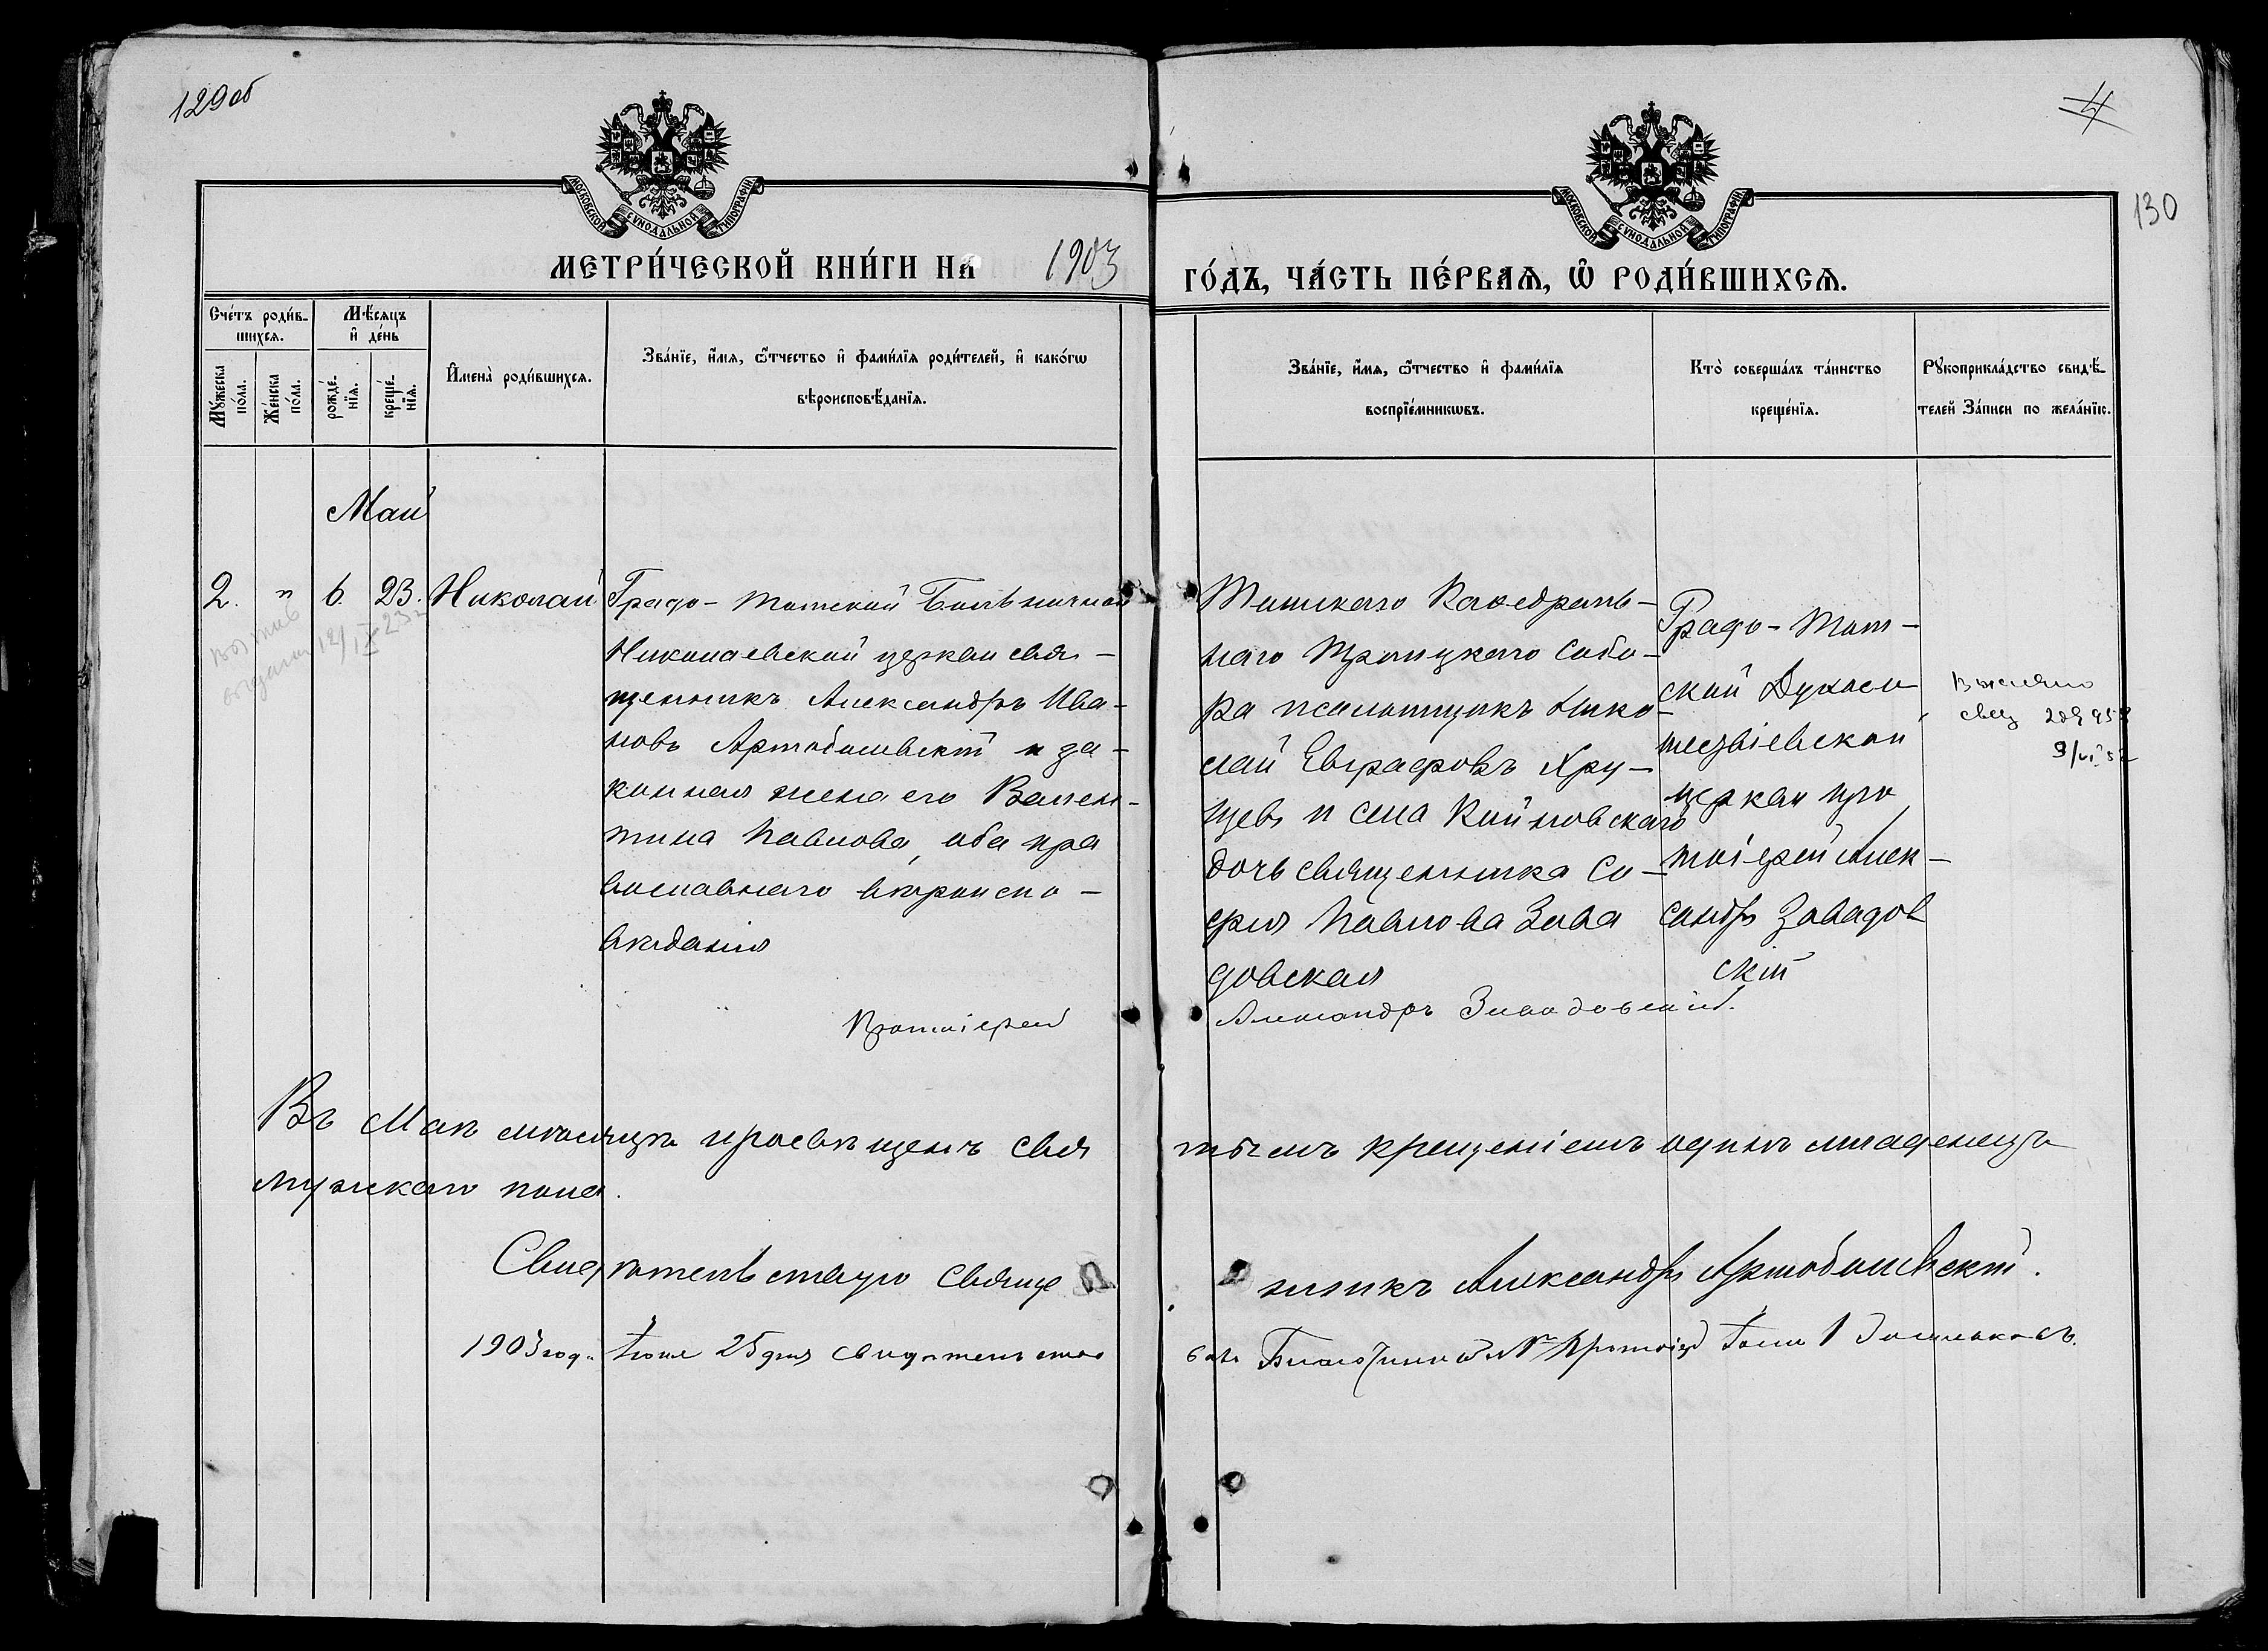 129об
4
130
МОСКОВСКОЙ СѴНОДАЛЬНОЙ ТИПОГРАФІИ
МОСКОВСКОЙ СѴНОДАЛЬНОЙ ТИПОГРАФІИ
МЕТРИ́ЧЕСКОЙ КНИ́ГИ НА 1903
ГО́ДЪ, ЧА́СТЬ ПЕ́РВАѦ, Ѡ҆ РОДИ́ВШИХСѦ.
Сче́тъ роди́в-
шихсѧ.
Мꙋ́жеска
по́ла.
Же́нска
по́ла.
Мѣ́сѧцъ
и҆ де́нь
рожде́-
нїѧ.
креще́-
нїѧ.
И҆мена̀ роди́вшихсѧ.
Зва́нїе, и҆́мѧ, ѻ҆́тчество и҆ фами́лїѧ роди́телей, и҆ како́гѡ
вѣроисповѣ́данїѧ.
Зва́нїе, и҆́мѧ, ѻ҆́тчество и҆ фами́лїѧ
воспрїе́мникѡвъ.
Кто̀ соверша́лъ та́инство
креще́нїѧ.
Рꙋкоприкла́дство свидѣ́-
телей За́писи по жела́нїю.
Май
2. " 6. 23. Николай
Градо-Томской Больничной
Николаевской церкви свя-
щенникъ Александръ Ива-
новъ Артоболевскій и за-
конная жена его Вален-
тина Павлова, оба пра
вославнаго вѣроиспо-
вѣданія
Томскаго Каѳедраль-
наго Троицкаго Собо-
ра псаломщикъ Нико-
лай Евграфовъ Хру-
щевъ и села Койновскаго
дочь священника Со-
фія Павлова Зава
довская
Градо-Том-
ской Духосо
шествіевской
церкви про
тоіерей Алек-
сандръ Завадов
скій
209958
Протоіерей
Александръ Завадовскій.
Въ Маѣ мѣсяцѣ просвѣщенъ свя
тымъ крещеніемъ одинъ младенецъ
мужскаго пола.
Свидѣтельствую Свяще
нникъ Александръ Артоболевскій.
1903 года Іюня 25 дня свидѣтельство
валъ Благочинный Протоіер